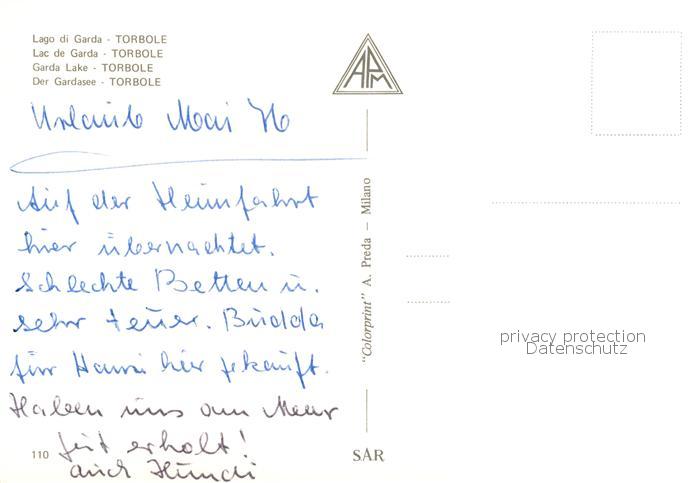 Lago di Garda - TORBOLE
Lac de Garda - TORBOLE
Garda Lake - TORBOLE
Der Gardasee - TORBOLE
APM
Urlaub Mai 76
Auf der Heimfahrt
hier übernachtet.
Schlechte Betten u.
sehr teuer. Budda
für Hansi hier gekauft.
Haben uns am Meer
gut erholt!
auch Hundi
110
SAR
"Colorprint" A. Preda — Milano
privacy protection
Datenschutz